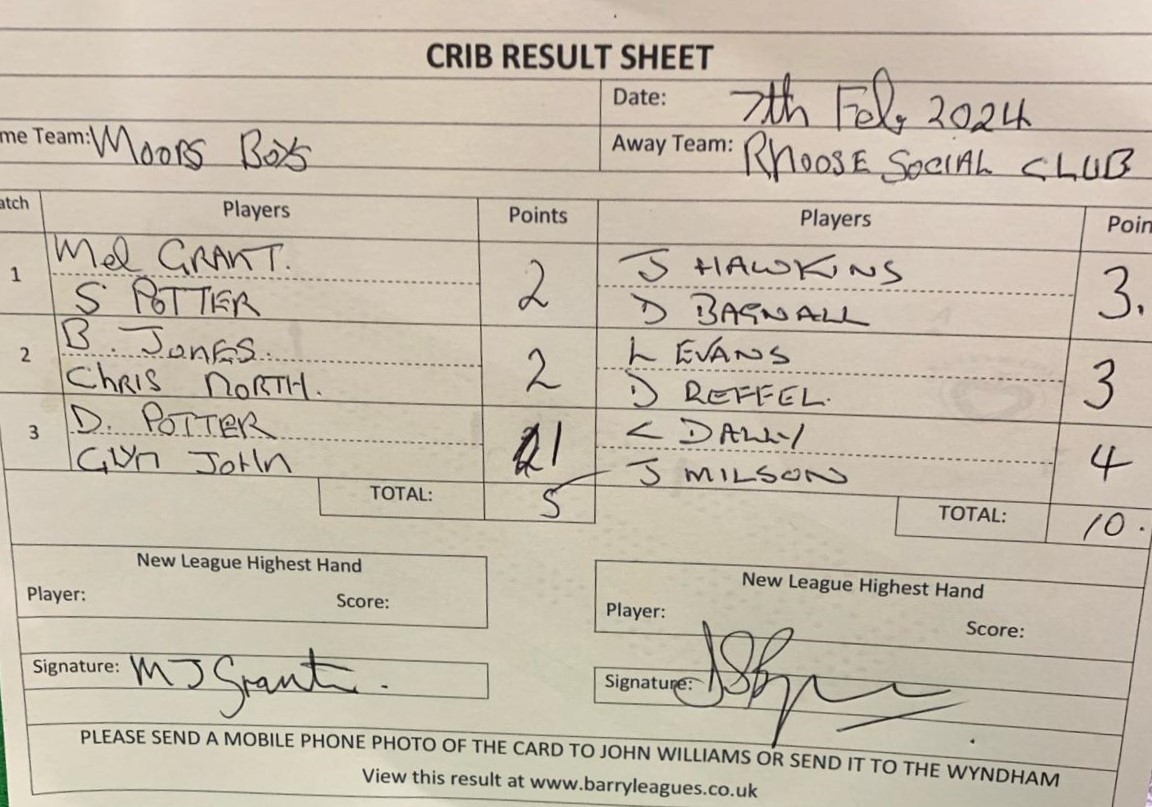 CRIB RESULT SHEET
Date: 7th Feb 2024
me Team: Moors Boys Away Team: RHOOSE SOCIAL CLUB
atch Players Points Players Poin
1 Mel GRANT. 2 J HAWKINS 3.
S POTTER D BAGNALL
2 B. JONES. 2 L EVANS 3
CHRIS NORTH. D REFFEL.
3 D. POTTER 1 C DALLY 4
GLYN JOHN J MILSON
TOTAL: 5 TOTAL: 10.
New League Highest Hand New League Highest Hand
Player: Score: Player: Score:
Signature: M J Grant. Signature:
PLEASE SEND A MOBILE PHONE PHOTO OF THE CARD TO JOHN WILLIAMS OR SEND IT TO THE WYNDHAM
View this result at www.barryleagues.co.uk